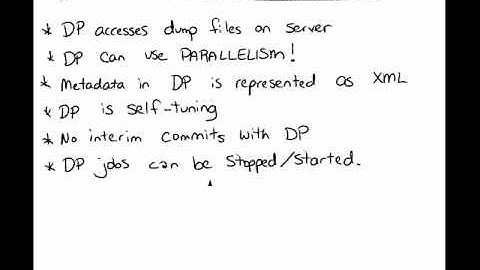 * DP accesses dump files on server
* DP can use PARALLELISM!
* Metadata in DP is represented as XML
* DP is self-tuning
* No interim commits with DP
* DP jobs can be Stopped/Started.